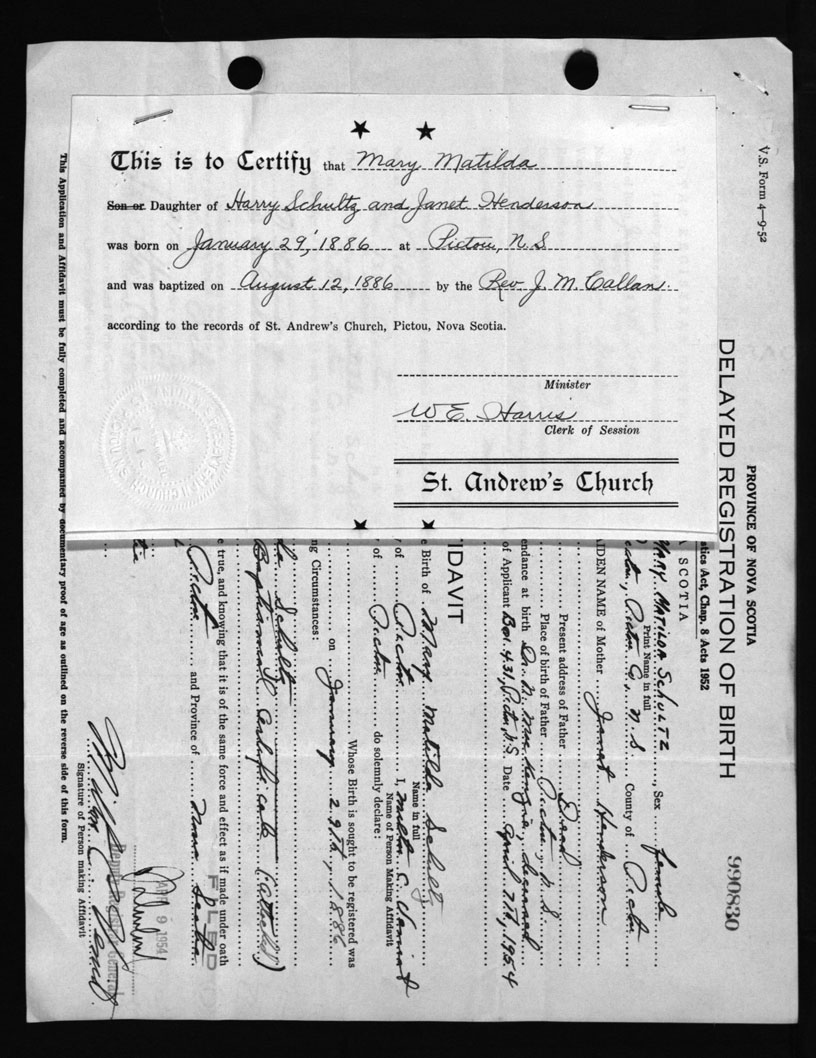 This is to Certify that Mary Matilda
Son or Daughter of Harry Schultz and Janet Henderson
was born on January 29, 1886 at Pictou, N.S
and was baptized on August 12, 1886 by the Rev. J. M. Callan.
according to the records of St. Andrew's Church, Pictou, Nova Scotia.
Minister
W. E. Harris
Clerk of Session
St. Andrew's Church
V.S. Form 4—9-52
PROVINCE OF NOVA SCOTIA
DELAYED REGISTRATION OF BIRTH
990830
Acts 1952, Chap. 8
SCOTIA
MARY MATILDA SCHULTZ, Sex female
Print Name in full
Pictou Co., N.S. County of Pictou
AIDEN NAME of Mother Janet Henderson
Present address of Father Dead
Place of birth of Father Pictou, N.S.
endance at birth Dr. deceased
of Applicant Box 431, Pictou, N.S. Date April 7th, 1954
IDAVIT
e Birth of Mary Matilda Schultz
Name in full
of Pictou I,
Name of Person Making Affidavit
of Pictou do solemnly declare:
Whose Birth is sought to be registered was
on January 29th, 1886
ng Circumstances:
Schultz
Baptismal Certificate (attached)
e true, and knowing that it is of the same force and effect as if made under oath
Pictou and Province of Nova Scotia
FILED
APR 9 1954
Deputy Registrar General
Signature of Person making Affidavit
This Application and Affidavit must be fully completed and accompanied by documentary proof of age as outlined on the reverse side of this form.